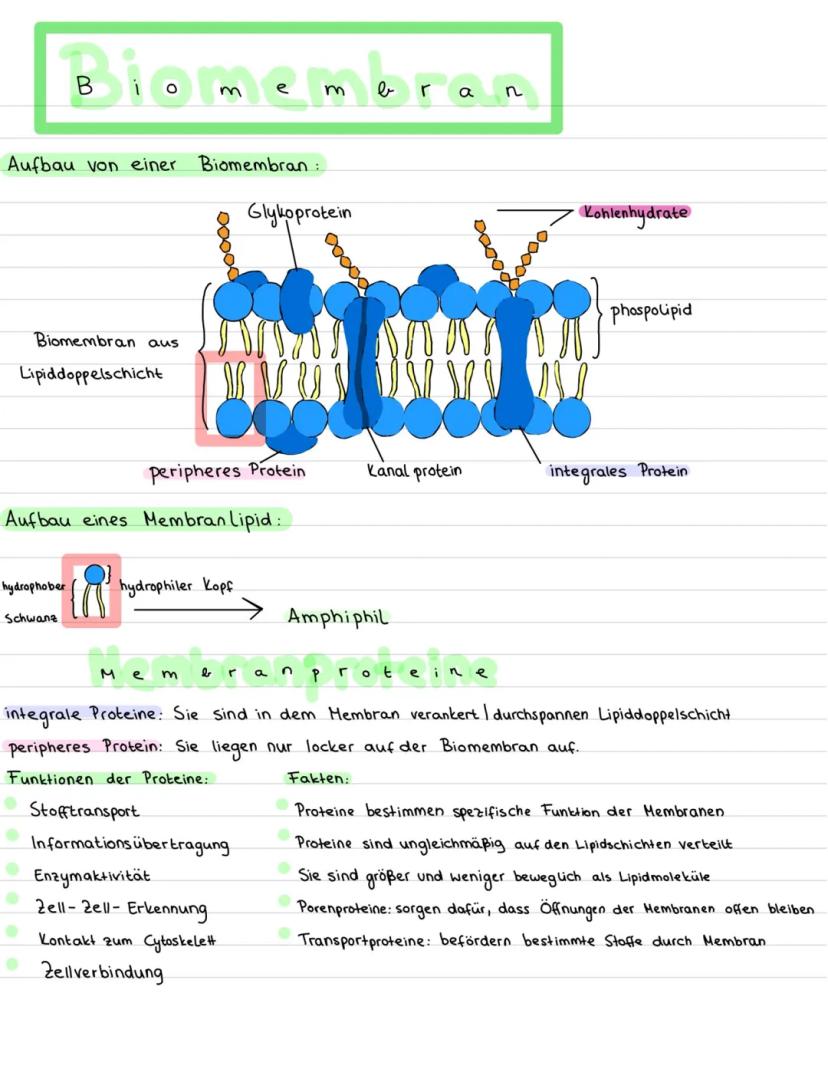 Biomembran
Aufbau von einer Biomembran:
Glykoprotein
Kohlenhydrate
phospolipid
Biomembran aus
Lipiddoppelschicht
peripheres Protein
Kanal protein
integrales Protein
Aufbau eines Membran Lipid:
hydrophober
Schwanz
hydrophiler Kopf
Amphiphil
Membranproteine
integrale Proteine: Sie sind in dem Membran verankert / durchspannen Lipiddoppelschicht
peripheres Protein: Sie liegen nur locker auf der Biomembran auf.
Funktionen der Proteine:
Stofftransport
Informationsübertragung
Enzymaktivität
Zell-Zell-Erkennung
Kontakt zum Cytoskelett
Zellverbindung
Fakten:
Proteine bestimmen spezifische Funktion der Membranen
Proteine sind ungleichmäßig auf den Lipidschichten verteilt
Sie sind größer und weniger beweglich als Lipidmoleküle
Porenproteine: sorgen dafür, dass Öffnungen der Membranen offen bleiben
Transportproteine: befördern bestimmte Stoffe durch Membran